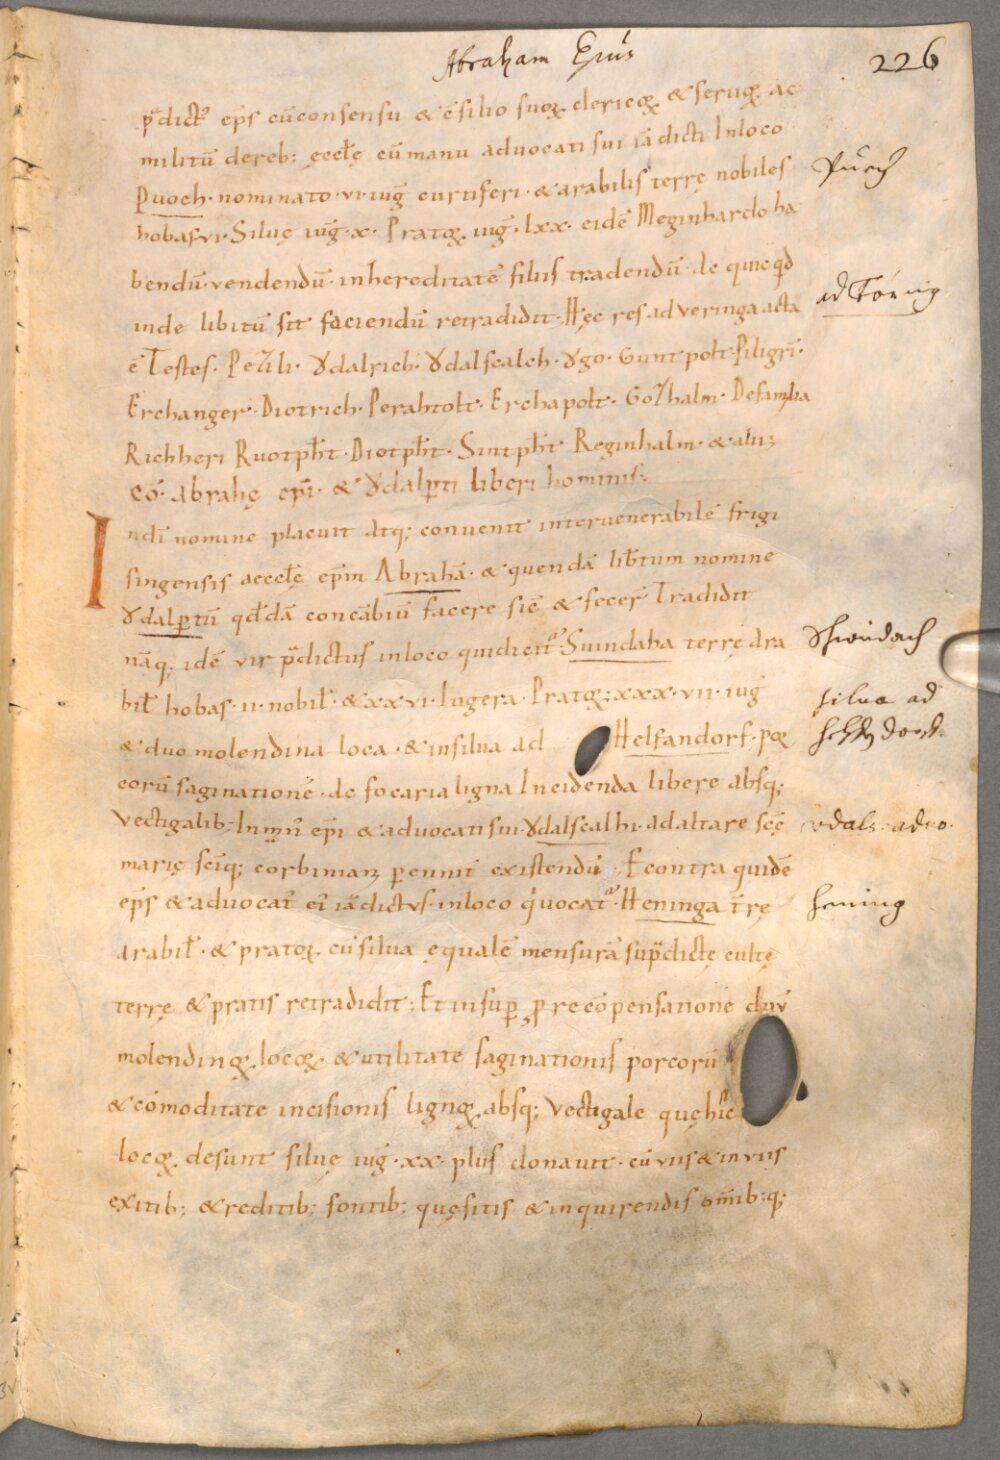 Abraham Epus
226
p̄dict⁹ ep̄s cū consensu & c̄silio suoꝝ clericoꝝ & seruoꝝ ac
militū de reb; ęccłę cū manu advocati sui iā dicti In loco
Puoch · nominato · vi · iuḡ curtiferi · & arabilis terrę nobiles
Púech
hobas · vi · Siluę iuḡ · x · Pratoꝝ iuḡ · lxx · eidē Meginhardo ha
bendū · vendendū · in hereditatē filiis tradendū · de quicqd
ad Töring
inde libitū sit faciendū retradidit · Hęc res ad veringa acta
ē Testes · Pezili · Ɣdalrich · Ɣdalscalch · Ɣgo · Guntpolt · Piligrī ·
Erchanger · Diotrich · Perahtolt · Erchapolt · Gozhalm · De familia
Richheri Ruotpħt · Diotpħt · Sintpħt Reginhalm · & alii;
Cō · abrahę ep̄i · & Ɣdalꝑti liberi hominis ·
In dī nomine placuit atq; convenit inter venerabilē frigi
singensis aeccłę ep̄m Abrahā · & quendā libtum nomine
Ɣdalꝑtū qđdā concābiū facere sic̄ & fecer̄ Tradidit
nāq; idē vir p̄dictus in loco qui dicit̄ Suindaha terrę ara
Schwindach
bił hobas · ii · nobił · & xxvi · Iugera · Pratoꝝ; xxx · vii · iuḡ
silva ad
& duo molendina loca · & in silua ad Helfandorf · poꝝ
corū saginationē · de focaria ligna Incidenda libere absq;
Vectigalib; In man̄ ep̄i & advocati sui · Ɣdalscalhi · ad altare sc̄ę
udals · advo ·
marię sc̄iq; corbiniani ꝑennit̄ existendū · Econtra quidē
ep̄s & advocat̄ ei iā dictus · in loco q́ uocat̄ Heninga tr̄rę
hening
arabił · & pratoꝝ cū silua ęqualē mensurā sup̄dictę cultę
terrę & pratis retradidit; Et insuꝑ ꝓ recōpensatione duū
molendinoꝝ locoꝝ & utilitate saginationis porcorū
& cōmoditate incisionis lignoꝝ absq; Vectigale quę hic
locoꝝ desunt siluę iuḡ · xx · plus donauit · cū viis & inviis
exitib; & reditib; fontib; quęsitis & inquirendis om̄ib; q;